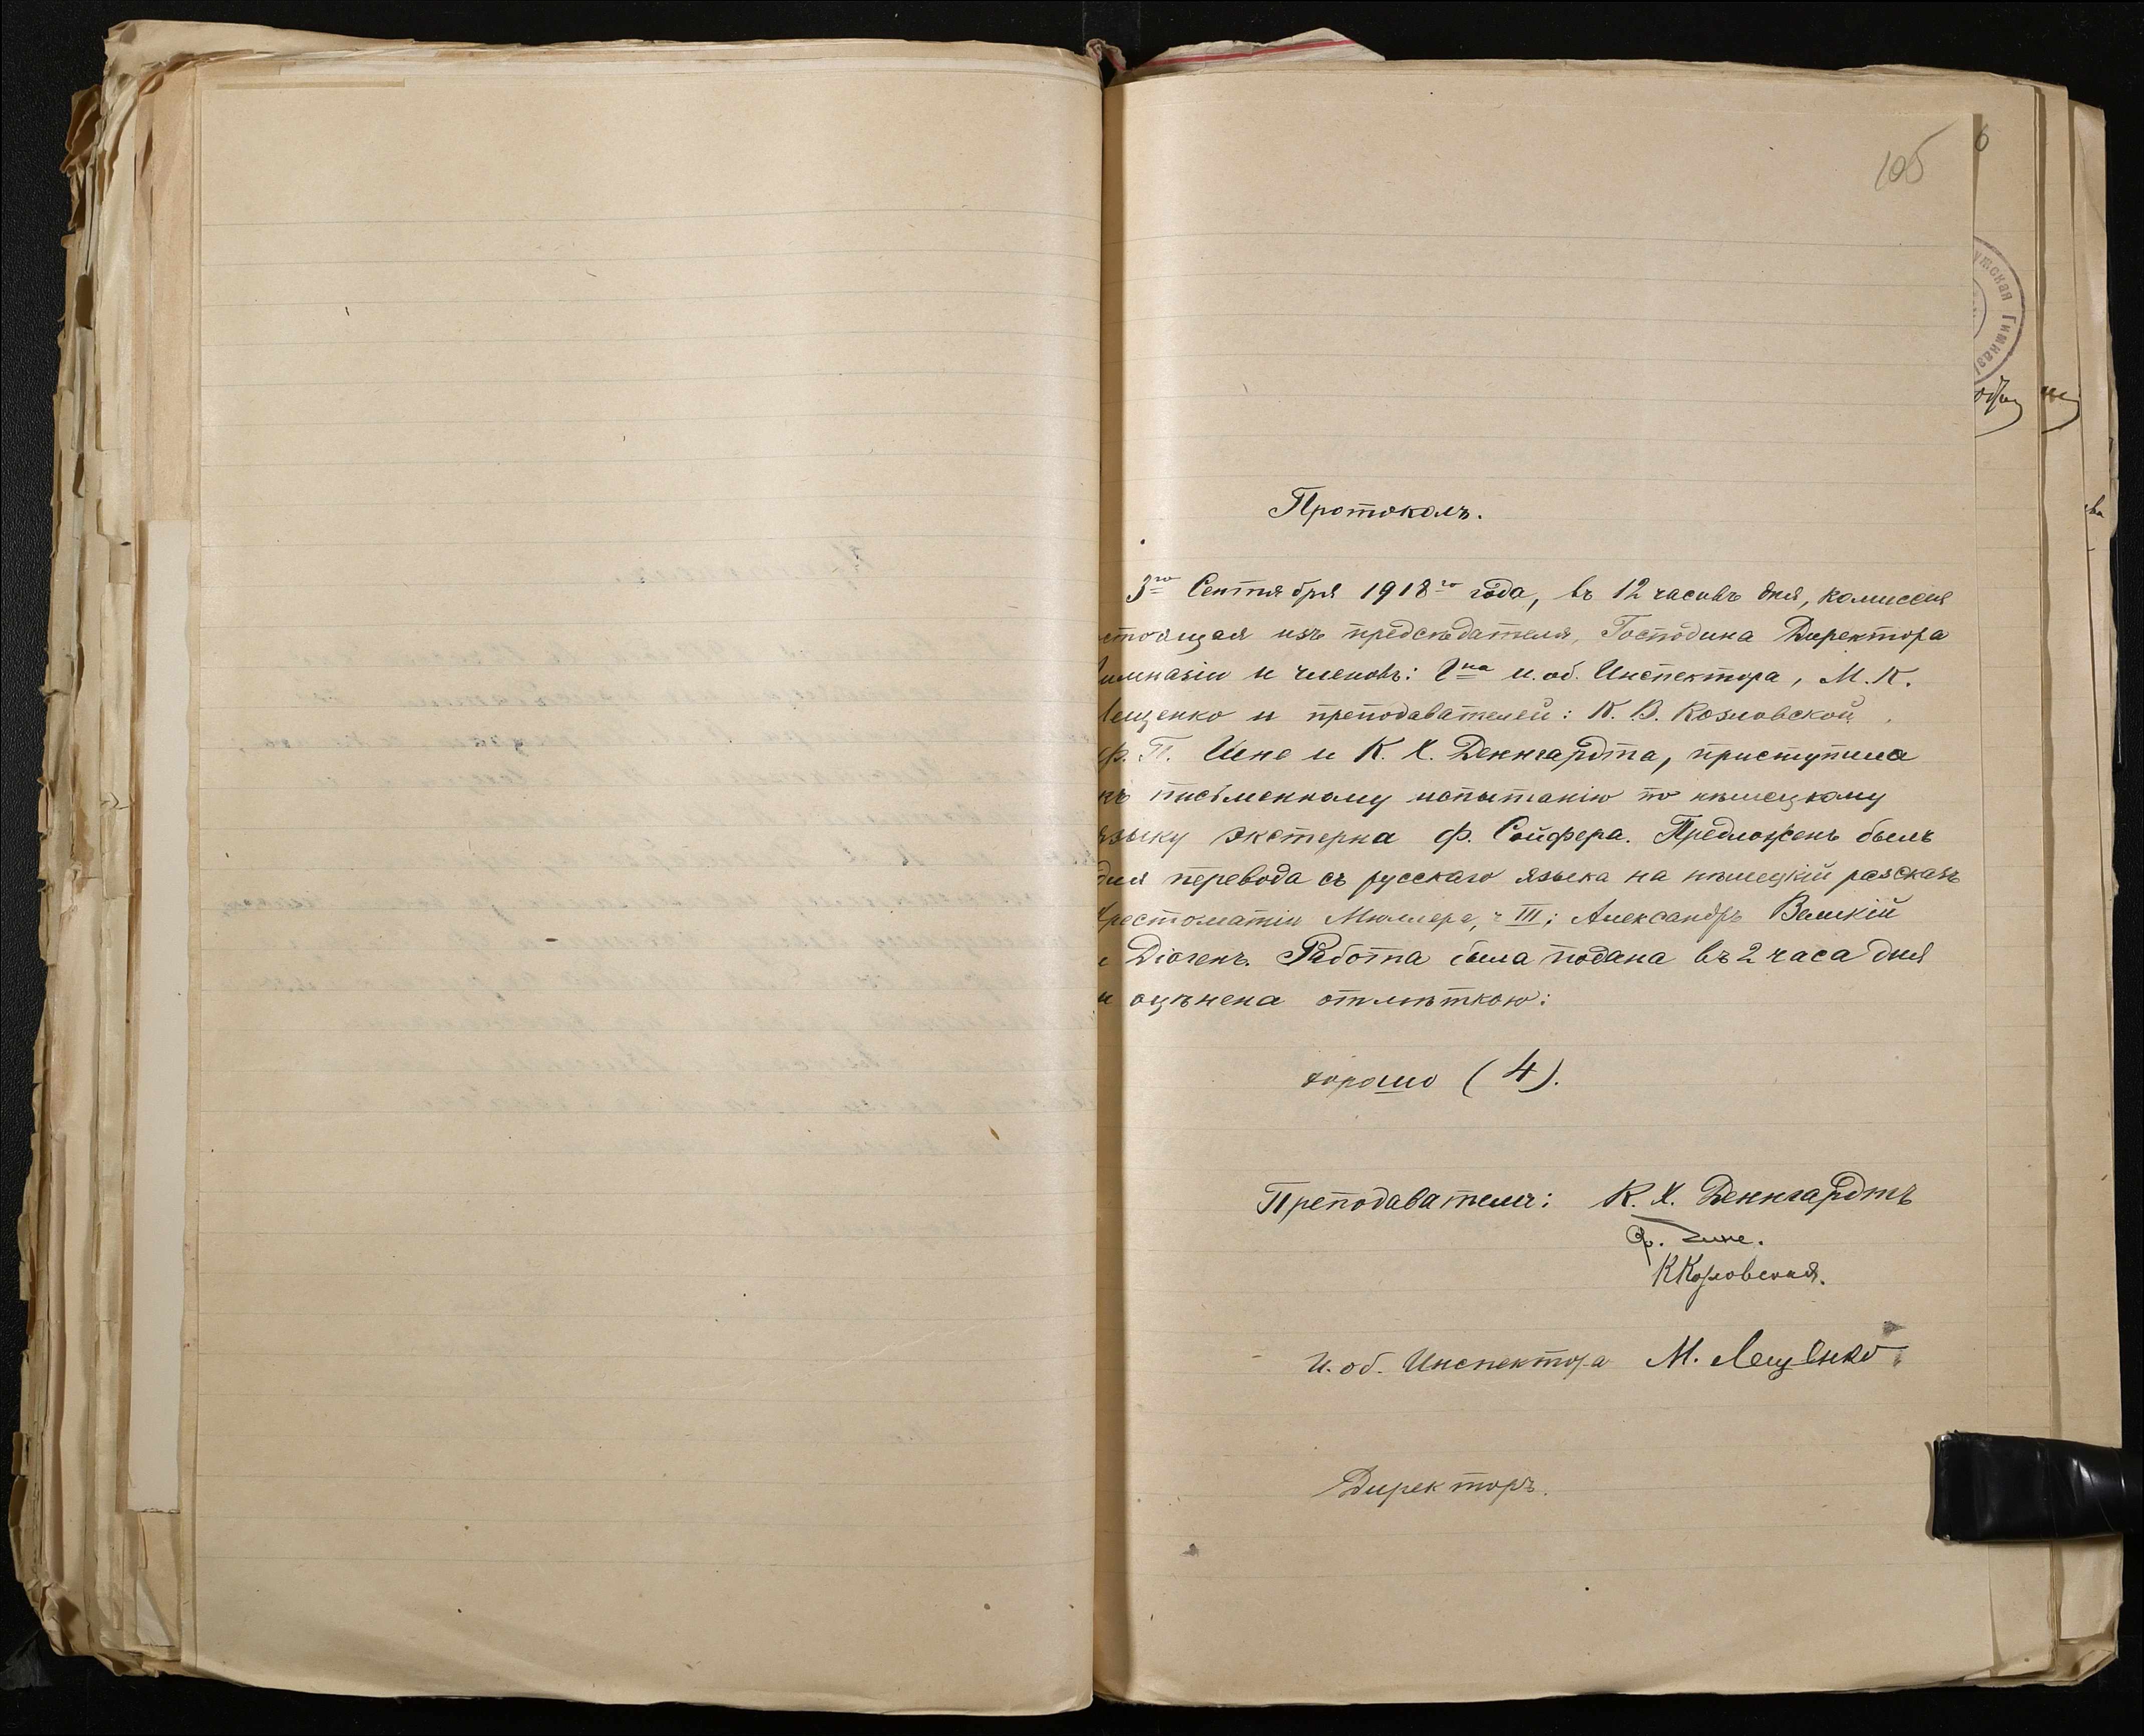 105
Протоколъ.
3го Сентября 1918го года, въ 12 часовъ дня, комиссия
стоящая изъ предсѣдателя, Господина Директора
имназіи и членовъ: Гна и. об. Инспектора, М. К.
Лещенко и преподавателей: К. В. Козловской,
Ф. П. Цине и К. Х. Деннгардта, приступила
къ письменному испытанію по нѣмецкому
языку экстерна Ф. Сойфера. Предложенъ былъ
для перевода съ русскаго языка на нѣмецкій разсказъ
Хрестоматіи Мюллера, ч III; Александръ Великій
и Діогенъ. Работа была подана въ 2 часа дня
и оцѣнена отмѣткою:
хорошо (4).
Преподаватели: К. Х. Деннгардтъ
Ф. Цине.
ККозловская.
И. об. Инспектора М. Лещенко
Директоръ.